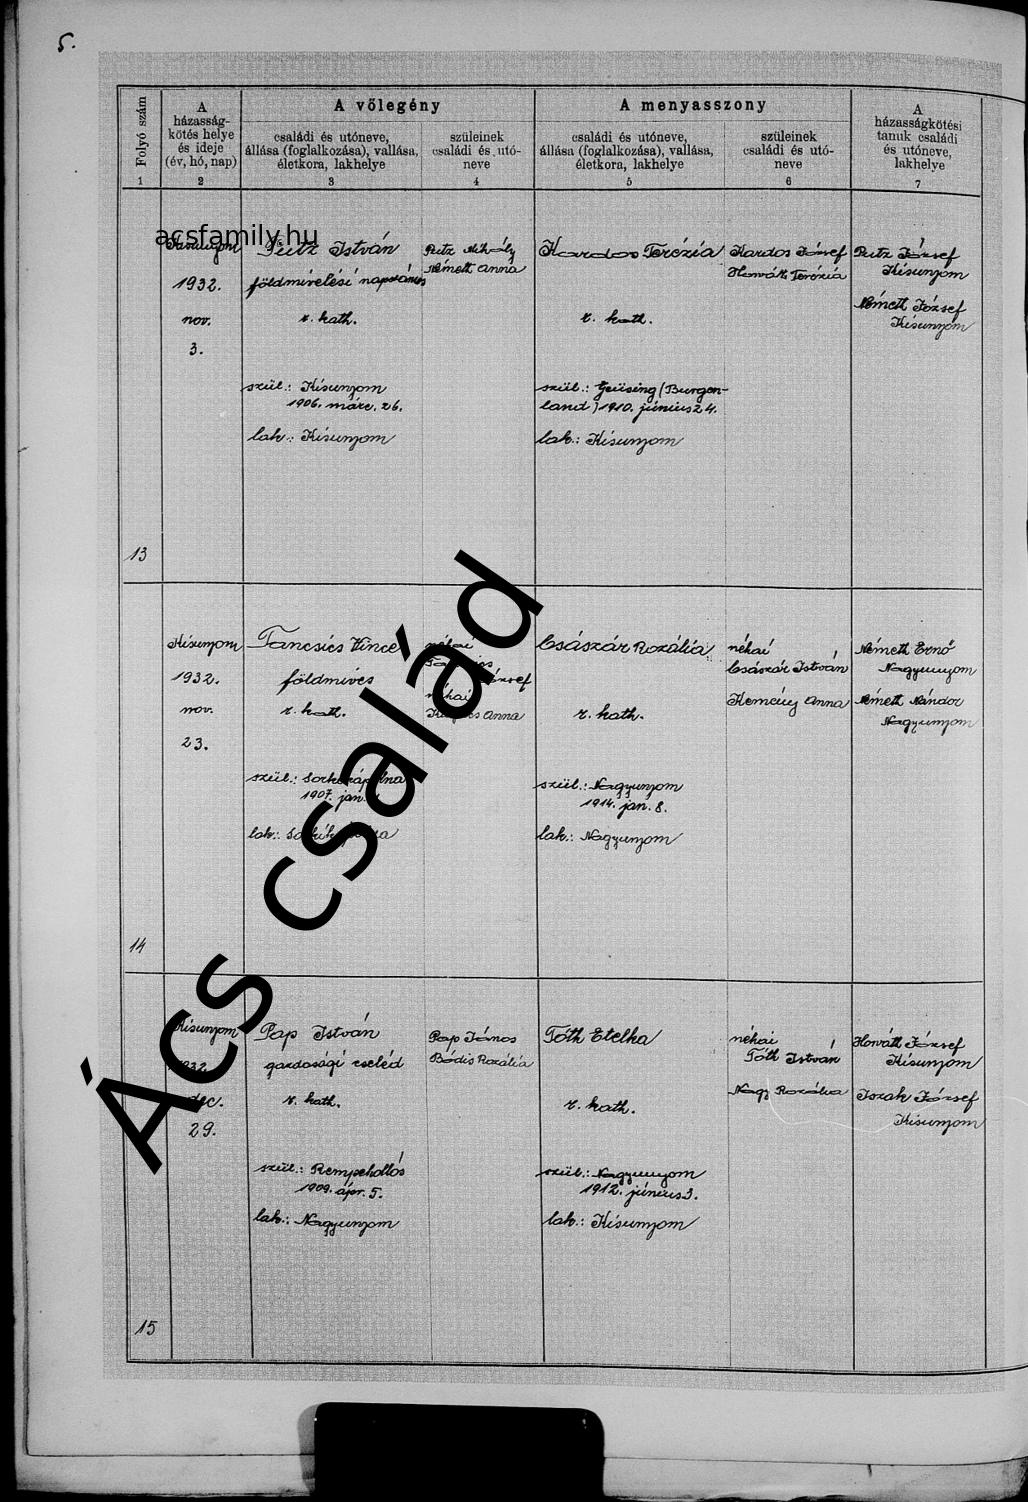 5.
Folyó szám
A
házasság-
kötés helye
és ideje
(év, hó, nap)
A vőlegény
családi és utóneve,
állása (foglalkozása), vallása,
életkora, lakhelye
szüleinek
családi és utó-
neve
A menyasszony
családi és utóneve,
állása (foglalkozása), vallása,
életkora, lakhelye
szüleinek
családi és utó-
neve
A
házasságkötési
tanuk családi
és utóneve,
lakhelye
1 2 3 4 5 6 7
acsfamily.hu
13
1932.
nov.
3.
István
földmivelési napszámos
r. kath.
szül.: Kisunyom
1906. márc. 26.
lak.: Kisunyom
Mihály
Németh Anna
Kardos Terézia
r. kath.
szül.: Güsing (Burgen-
land) 1910. június 24.
lak.: Kisunyom
Kardos József
Horváth Terézia
József
Kisunyom
Németh József
Kisunyom
14
Kisunyom
1932.
nov.
23.
Tancsics Vince
földmíves
r. kath.
szül.:
1907. jan.
lak.:
néhai
József
néhai
Anna
Császár Rozália
r. kath.
szül.: Nagyunyom
1914. jan. 8.
lak.: Nagyunyom
néhai
Császár István
Kemény Anna
Németh Ernő
Nagyunyom
Németh Nándor
Nagyunyom
15
Kisunyom
1932.
dec.
29.
Pap István
gazdasági cseléd
r. kath.
szül.: Rempehollós
1909. ápr. 5.
lak.: Nagyunyom
Pap János
Bódis Rozália
Tóth Etelka
r. kath.
szül.: Nagyunyom
1912. június 3.
lak.: Kisunyom
néhai
Tóth István
Nagy Rozália
Horváth József
Kisunyom
Iszak József
Kisunyom
Ács család